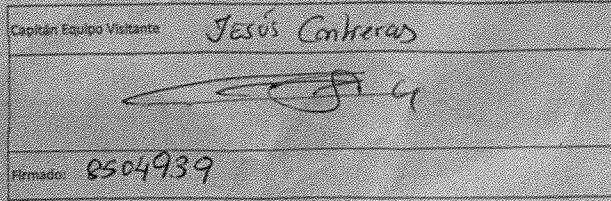 Capitán Equipo Visitante Jesús Contreras
Firmado: 8504939